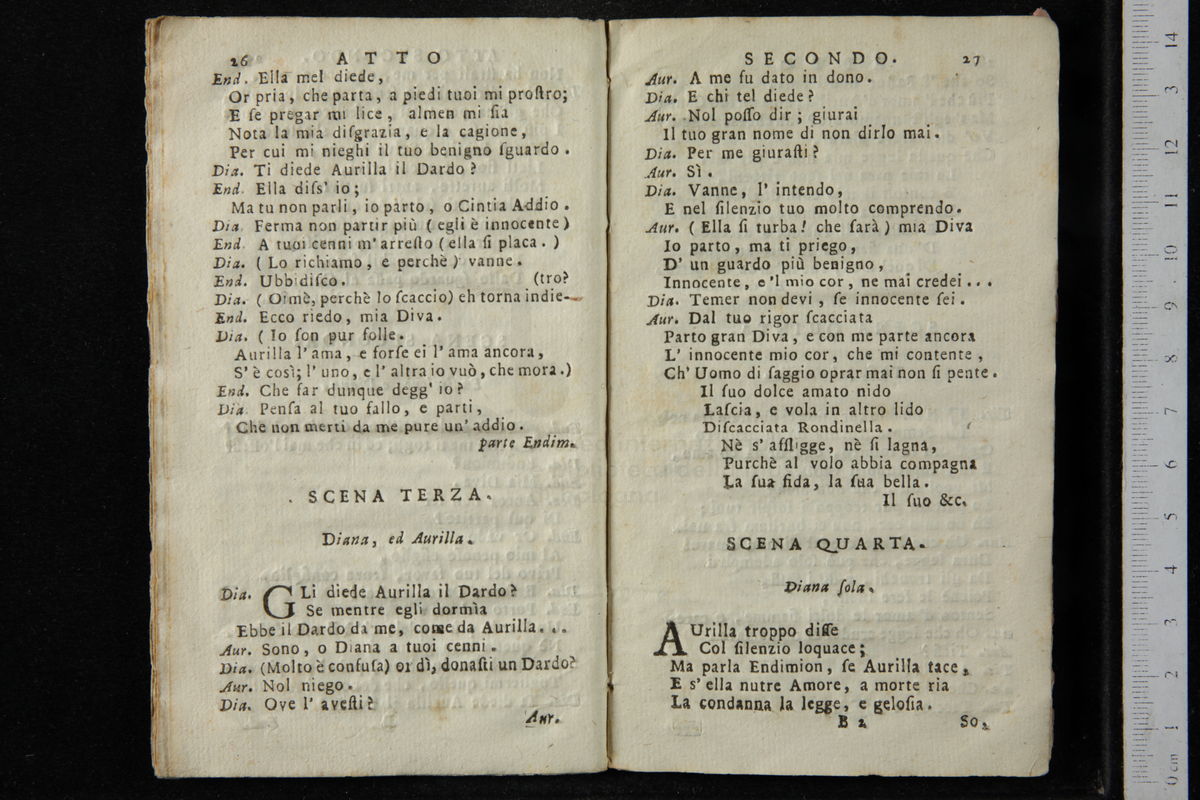 26 ATTO
End. Ella mel diede,
Or pria, che parta, a piedi tuoi mi proſtro;
E ſe pregar mi lice, almen mi ſia
Nota la mia diſgrazia, e la cagione,
Per cui mi nieghi il tuo benigno ſguardo.
Dia. Ti diede Aurilla il Dardo?
End. Ella diſs' io;
Ma tu non parli, io parto, o Cintia Addio.
Dia. Ferma non partir più (egli è innocente)
End. A tuoi cenni m'arreſto (ella ſi placa.)
Dia. (Lo richiamo, e perchè) vanne.
End. Ubbidiſco. (tro?
Dia. (Oimè, perchè lo ſcaccio) eh torna indie-
End. Ecco riedo, mia Diva.
Dia. (Io ſon pur folle.
Aurilla l'ama, e forſe ei l'ama ancora,
S'è così; l'uno, e l'altra io vuò, che mora.)
End. Che far dunque degg' io?
Dia. Penſa al tuo fallo, e parti,
Che non merti da me pure un' addio.
parte Endim.
SCENA TERZA.
Diana, ed Aurilla.
Dia. GLi diede Aurilla il Dardo?
Se mentre egli dormìa
Ebbe il Dardo da me, come da Aurilla...
Aur. Sono, o Diana a tuoi cenni.
Dia. (Molto è confuſa) or dì, donaſti un Dardo?
Aur. Nol niego.
Dia. Ove l' aveſti?
Aur.
SECONDO. 27
Aur. A me fu dato in dono.
Dia. E chi tel diede?
Aur. Nol poſſo dir; giurai
Il tuo gran nome di non dirlo mai.
Dia. Per me giuraſti?
Aur. Sì.
Dia. Vanne, l' intendo,
E nel ſilenzio tuo molto comprendo.
Aur. (Ella ſi turba! che ſarà) mia Diva
Io parto, ma ti priego,
D' un guardo più benigno,
Innocente, e 'l mio cor, ne mai credei...
Dia. Temer non devi, ſe innocente ſei.
Aur. Dal tuo rigor ſcacciata
Parto gran Diva, e con me parte ancora
L' innocente mio cor, che mi contente,
Ch' Uomo di ſaggio oprar mai non ſi pente.
Il ſuo dolce amato nido
Laſcia, e vola in altro lido
Diſcacciata Rondinella.
Nè s' affligge, nè ſi lagna,
Purchè al volo abbia compagna
La ſua fida, la ſua bella.
Il ſuo &c.
SCENA QUARTA.
Diana ſola.
AUrilla troppo diſſe
Col ſilenzio loquace;
Ma parla Endimion, ſe Aurilla tace,
E s' ella nutre Amore, a morte ria
La condanna la legge, e geloſia.
B 2 So-
14
13
12
11
10
9
8
7
6
5
4
3
2
1
0 cm